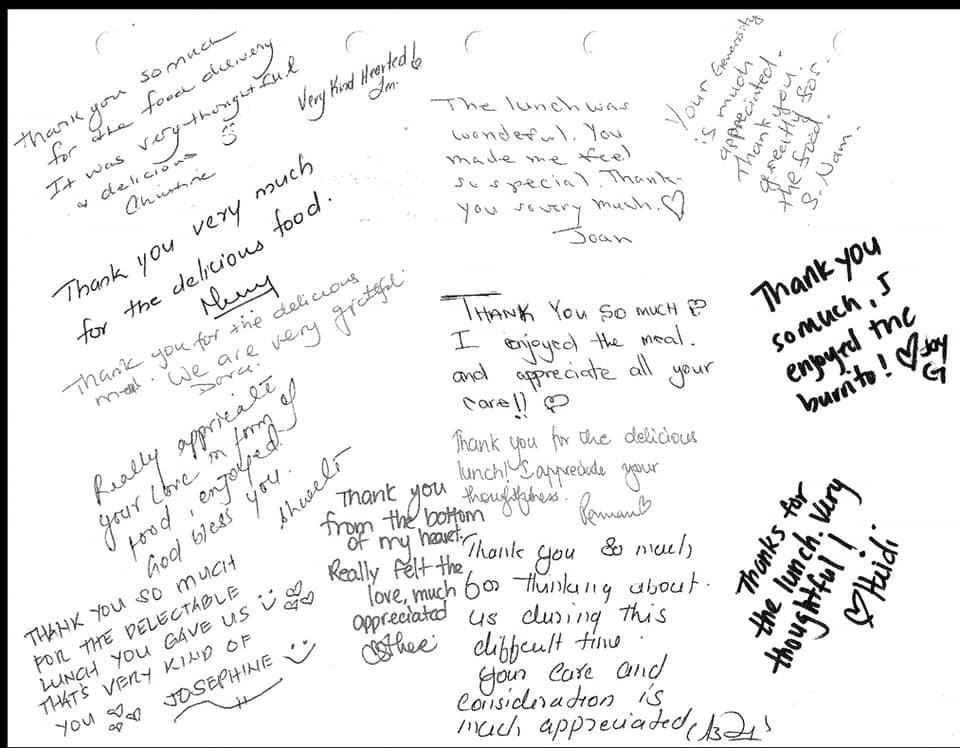 Thank you so much
for the food delivery
It was very thoughtful
& delicious
Christine
Very Kind Hearted
The lunch was
wonderful. You
made me feel
so special. Thank-
you so very much.
Joan
Your Generosity
is much
appreciated.
Thank you
the food.
S. Nam.
Thank you very much
for the delicious food.
Thank you for the delicious
meal. We are very grateful.
THANK YOU SO MUCH
I enjoyed the meal.
and appreciate all your
care!!
Thank you
so much, I
enjoyed the
burrito! Joy
G
Really appriciate
your love in form of
food, enjoyed.
God bless you.
Shweta
Thank you for the delicious
lunch! I appreciate your
Thank you
from the bottom
of my heart.
Really felt the
love, much
appreciated
Thanks for
the lunch. Very
thoughtful!
Haidi
THANK YOU SO MUCH
FOR THE DELECTABLE
LUNCH YOU GAVE US
THAT'S VERY KIND OF
YOU JOSEPHINE
Thank you so much
for thinking about
us during this
difficult time
your care and
consideration is
much appreciated